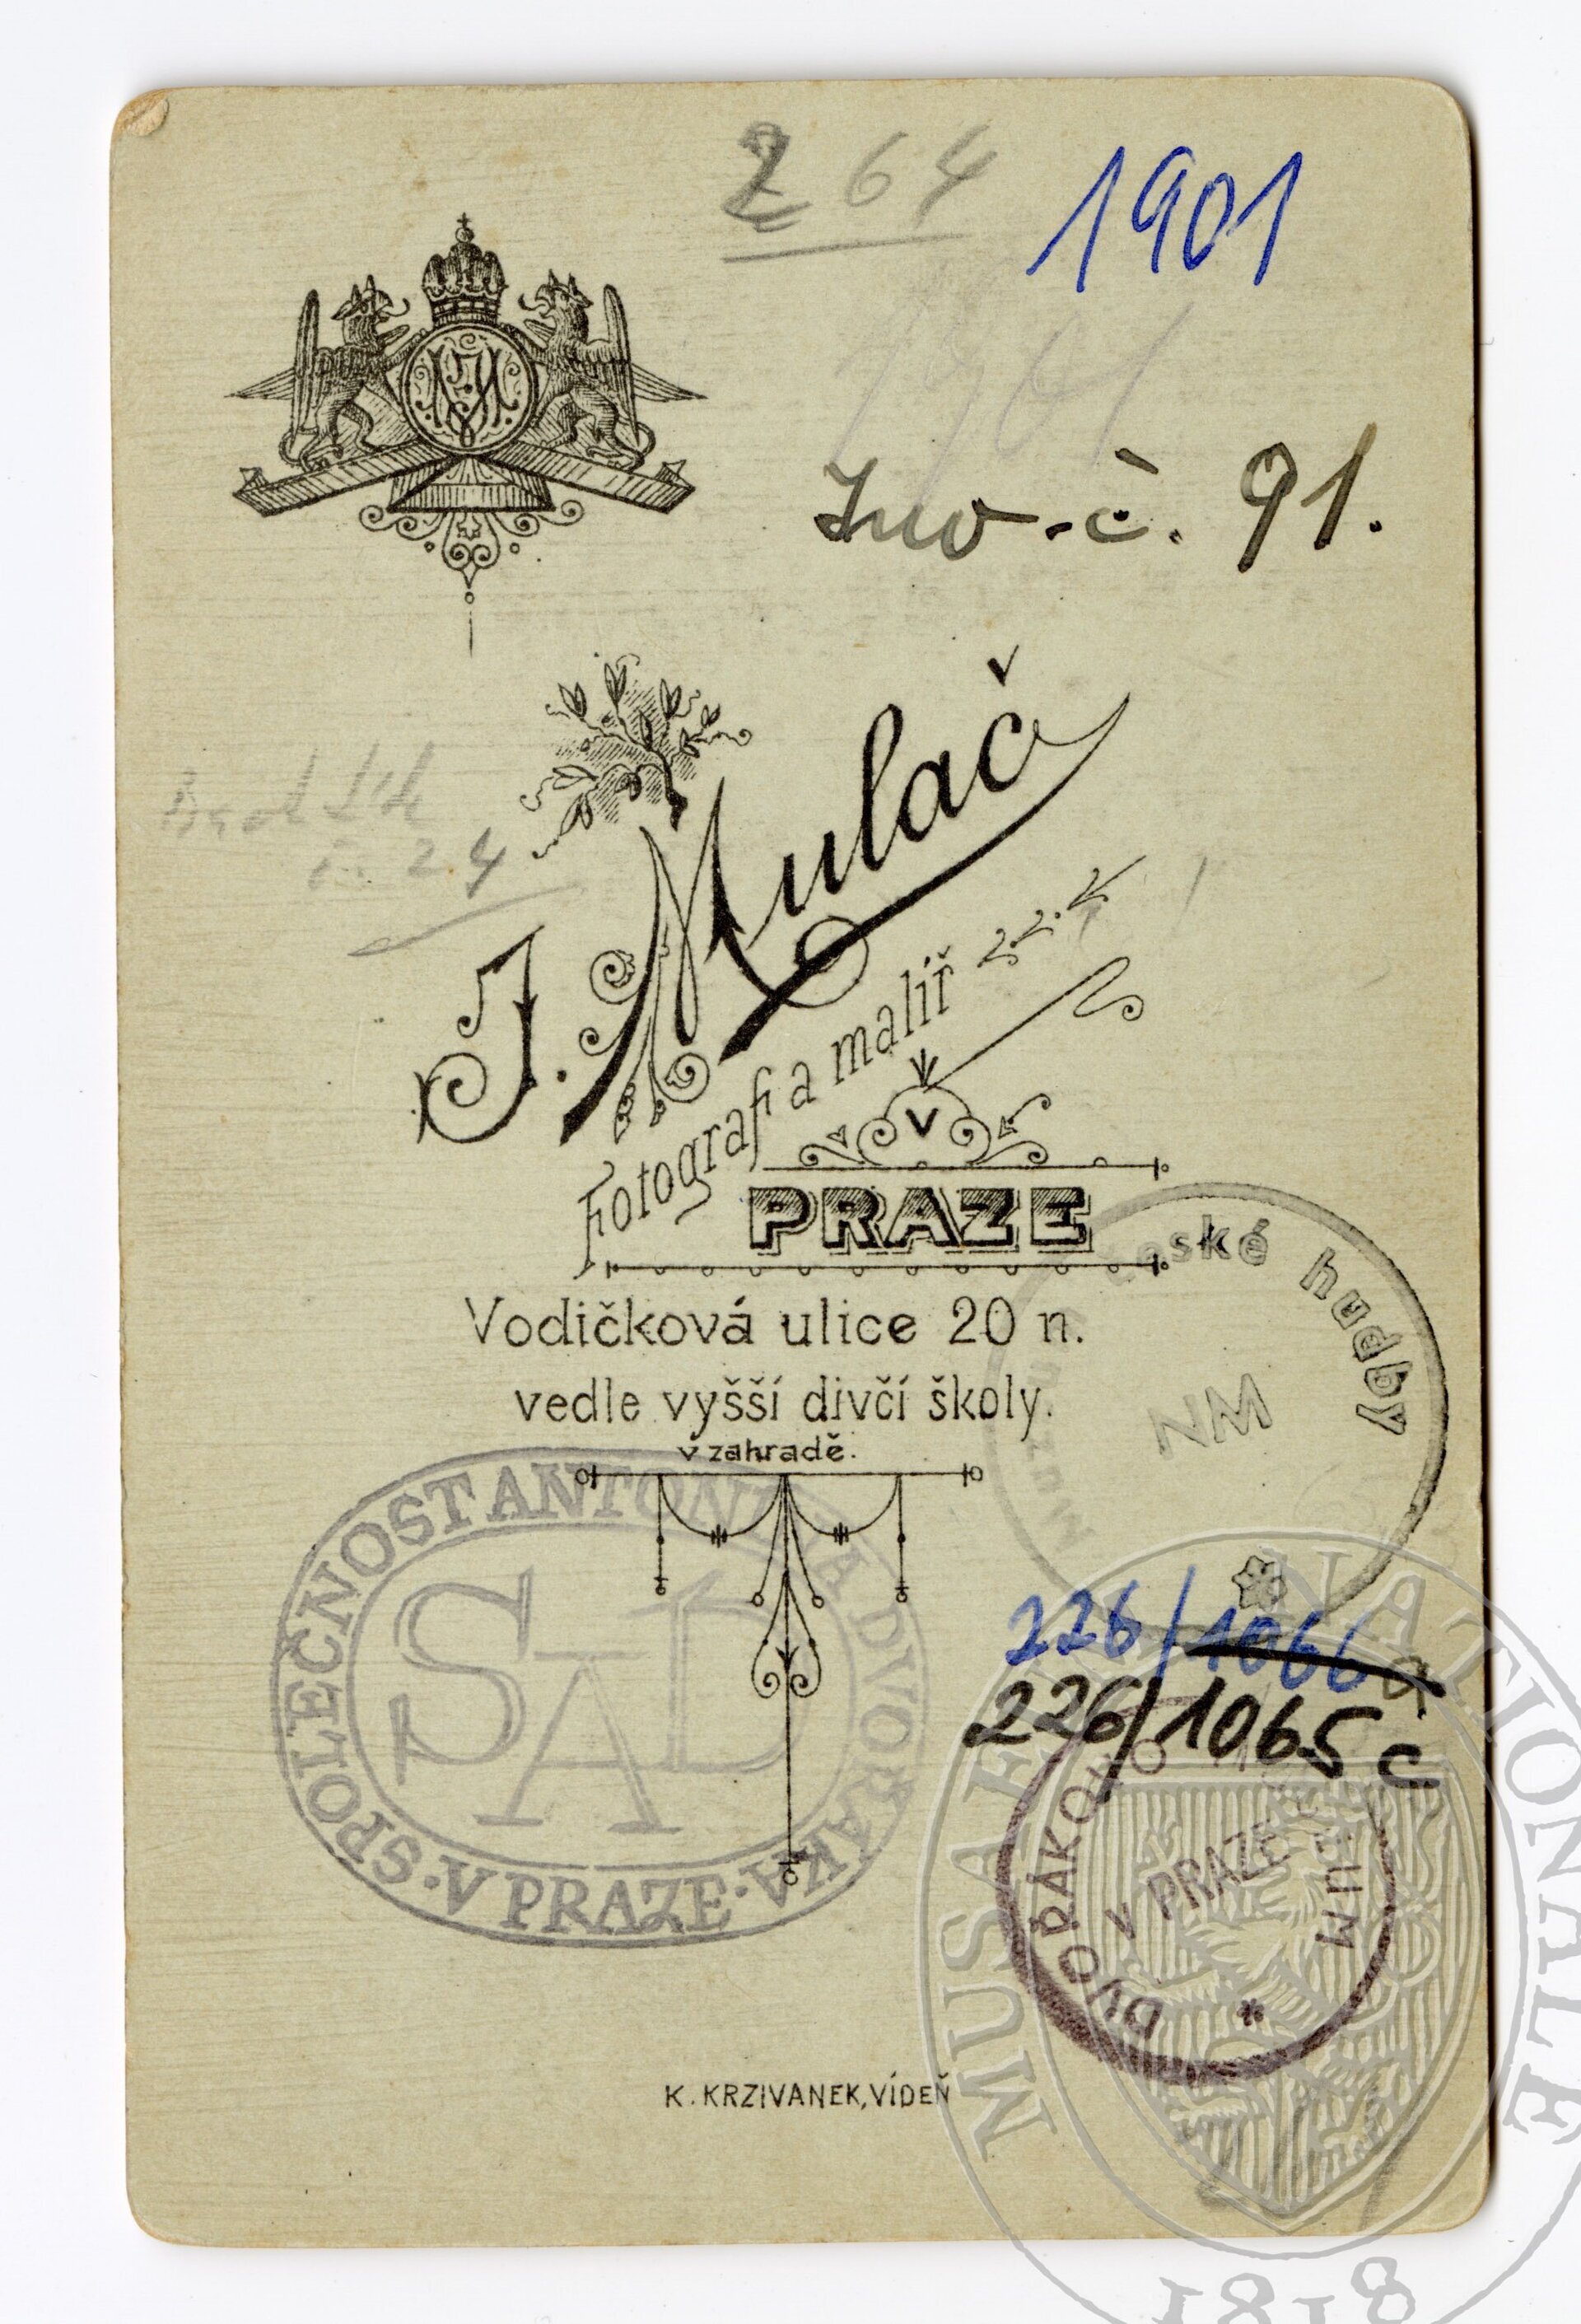 264
1901
1901
Inv. č. 91.
JM
č. 24
J. Mulač
Fotograf a malíř
v
PRAZE
Vodičková ulice 20 n.
vedle vyšší divčí školy.
v zahradě.
Muzeum české hudby
NM
SPOLEČNOST ANTONÍNA DVOŘÁKA · V PRAZE ·
SAD
226/1066 d
226/1065 c
DVOŘÁKOVO MUZEUM
V PRAZE
K. KRZIVANEK, VÍDEŇ
MUSAEUM NATIONALE
1818